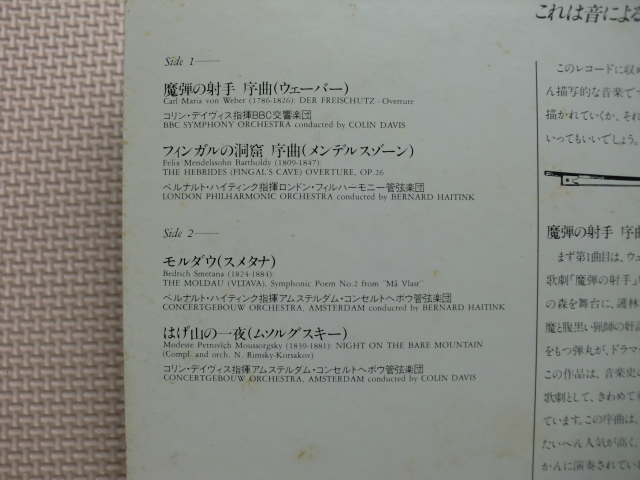 Side 1
魔弾の射手 序曲(ウェーバー)
Carl Maria von Weber (1786-1826): DER FREISCHUTZ - Overture
コリン・デイヴィス指揮BBC交響楽団
BBC SYMPHONY ORCHESTRA conducted by COLIN DAVIS
フィンガルの洞窟 序曲(メンデルスゾーン)
Felix Mendelssohn Bartholdy (1809-1847):
THE HEBRIDES (FINGAL'S CAVE) OVERTURE, OP.26
ベルナルト・ハイティンク指揮ロンドン・フィルハーモニー管弦楽団
LONDON PHILHARMONIC ORCHESTRA conducted by BERNARD HAITINK
Side 2
モルダウ(スメタナ)
Bedrich Smetana (1824-1884):
THE MOLDAU (VLTAVA), Symphonic Poem No.2 from "Má Vlast"
ベルナルト・ハイティンク指揮アムステルダム・コンセルトヘボウ管弦楽団
CONCERTGEBOUW ORCHESTRA, AMSTERDAM conducted by BERNARD HAITINK
はげ山の一夜(ムソルグスキー)
Modeste Petrovich Moussorgsky (1839-1881): NIGHT ON THE BARE MOUNTAIN
(Compl. and orch. N. Rimsky-Korsakov)
コリン・デイヴィス指揮アムステルダム・コンセルトヘボウ管弦楽団
CONCERTGEBOUW ORCHESTRA, AMSTERDAM conducted by COLIN DAVIS
これは音による
このレコードに収め
ん描写的な音楽で
描かれていくか、それ
いってもいいでしょう。
魔弾の射手 序曲
まず第1曲目は、ウェ
歌劇「魔弾の射手」
の森を舞台に、護林
魔と腹黒い猟師の奸
をもつ弾丸が、ドラマ
この作品は、音楽史
歌劇として、きわめて
ています。この序曲は、
たいへん人気が高く、
かんに演奏されてい